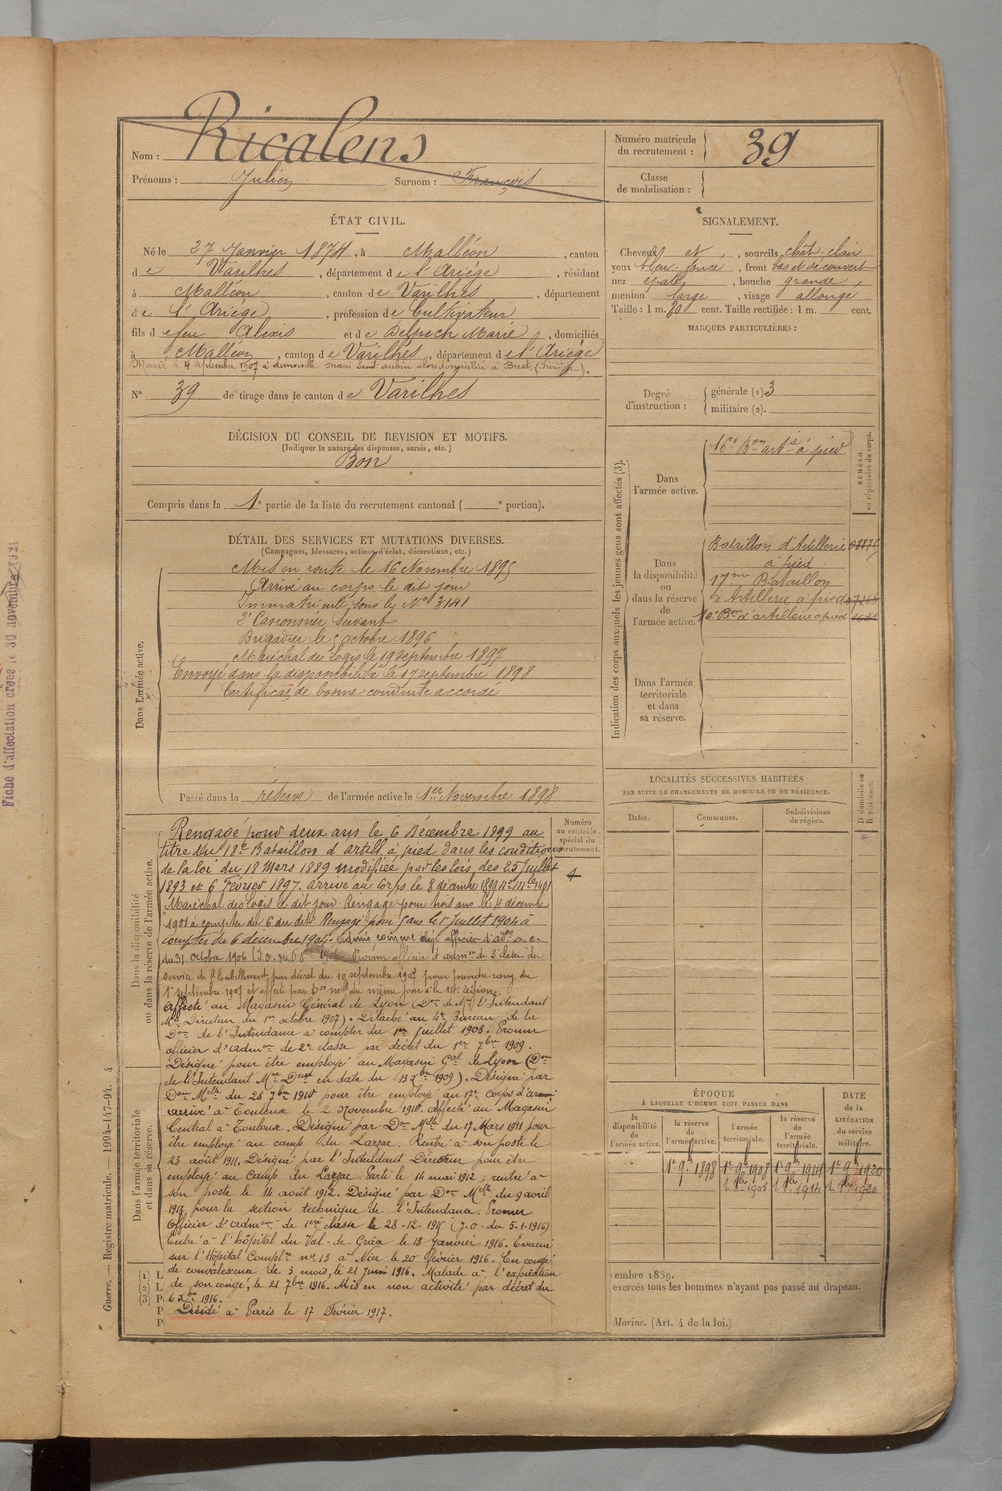 Nom : Ricalens
Prénoms : Julien Surnom : François
Numéro matricule du recrutement : 39
Classe de mobilisation :
ÉTAT CIVIL.
Né le 27 Janvier 1874, à Malléon, canton
d e Varilhes, département d e l'Ariége, résidant
à Malléon, canton d e Varilhes, département
d e l'Ariège, profession d e Cultivateur
fils d e feu Alexis et d e Delpech Marie, domiciliés
à Malléon, canton d e Varilhes, département d e l'Ariège
Marié le 4 septembre 1907 à demoiselle
N° 39 de tirage dans le canton d e Varilhes
DÉCISION DU CONSEIL DE REVISION ET MOTIFS.
(Indiquer la nature des dispenses, sursis, etc.)
Bon
Compris dans la 1e partie de la liste du recrutement cantonal ( e portion).
SIGNALEMENT.
Cheveux et , sourcils chât. clair
yeux bleu foncé, front bas et découvert
nez épaté, bouche grande,
menton large, visage allongé
Taille : 1 m. 80 cent. Taille rectifiée : 1 m. cent.
MARQUES PARTICULIÈRES :
Degré d'instruction :
générale (1) 3
militaire (2).
Indication des corps auxquels les jeunes gens sont affectés (3).
NUMÉRO au répertoire du corps.
Dans l'armée active.
16e Bon artie à pied
Dans la disponibilité ou dans la réserve de l'armée active.
Bataillon d'Artillerie
à pied
17me Bataillon
d'Artillerie à pied
10e Bon d'artillerie à pied
Dans l'armée territoriale et dans sa réserve.
DÉTAIL DES SERVICES ET MUTATIONS DIVERSES.
(Campagnes, blessures, actions d'éclat, décorations, etc.)
Dans l'armée active.
Mis en route le 16 Novembre 1895
Arrivé au corps le dit jour
Immatriculé sous le No 3141
2e Canonnier Servant
Brigadier le Octobre 1896
Maréchal des Logis le 19 septembre 1897
Envoyé dans la disponibilité le 17 septembre 1898
Certificat de bonne conduite accordé
Passé dans la réserve de l'armée active le 1er Novembre 1898
LOCALITÉS SUCCESSIVES HABITÉES
PAR SUITE DE CHANGEMENTS DE DOMICILE OU DE RÉSIDENCE.
Dates.
Communes.
Subdivisions de région.
D domicile ou R résidence.
Dans la disponibilité ou dans la réserve de l'armée active.
Numéro au contrôle spécial du recrutement.
4
Rengagé pour deux ans le 6 Décembre 1899 au
titre du 18e Bataillon d'artillie à pied dans les conditions
de la loi du 18 Mars 1889 modifiée par les lois des 25 Juillet
1893 et 6 Février 1897. Arrivé au Corps le 8 décembre 1899
Maréchal des logis le dit jour. Rengagé pour trois ans le 4 décembre
1901 à compter du 6 du dit. Rengagé pour 5 ans le 1er Juillet 1904 à
compter du 6 décembre 1904. Admis comme élève officier d'adon
du 31 octobre 1906 Promu officier d'admon de 3e classe du
service de l'habillement par décret du 10 septembre 1907 pour prendre rang du
1er septembre 1907 et affecté par
Affecté au Magasin Général de Lyon (Don de Mr l'Intendant
Mre Directeur du 1er octobre 1907). Détaché au 4e Bureau de la
Don de l'Intendance à compter du 1er juillet 1908. Promu
officier d'admon de 2e classe par décret du 1er 7bre 1909.
Désigné pour être employé au Magasin Gal de Lyon (Don
de l'Intendant Mre Dteur en date du 13 Xbre 1909). Désigné par
Don Mlle du 28 7bre 1910 pour être employé au 17e corps d'armée
arrivé à Toulouse le 2 Novembre 1910. Affecté au Magasin
Central à Toulouse. Désigné par Don Mlle du 17 Mars 1911 pour
être employé au camp du Larzac. Rentré à son poste le
23 août 1911. Désigné par l'Intendant Directeur pour être
employé au camp du Larzac. Parti le 14 mai 1912; rentré à
son poste le 14 août 1912. Désigné par Don Mlle du 9 avril
pour la section technique de l'Intendance. Promu
Officier d'admon de 1ère classe le 28-12-1915 (J.O. du 5-1-1916)
Entré à l'hôpital du Val-de-Grâce le 13 Janvier 1916. Evacué
sur l'Hôpital Complre no 13 à Nice le 20 février 1916. En congé
de convalescence de 3 mois, le 21 Juin 1916. Malade à l'expiration
de son congé, le 21 7bre 1916. Mis en non activité par décret du
6 Xbre 1916.
Décédé à Paris le 17 Février 1917.
Dans l'armée territoriale et dans sa réserve.
ÉPOQUE
À LAQUELLE L'HOMME DOIT PASSER DANS
DATE de la LIBÉRATION du service militaire.
la disponibilité de l'armée active.
la réserve de l'armée active.
l'armée territoriale.
la réserve de l'armée territoriale.
1er 9bre 1898 1er 9bre 1908 1er 9bre 1914 1er 9bre 1920
embre 1889.
exercés tous les hommes n'ayant pas passé au drapeau.
Marine. (Art. 4 de la loi.)
(1) L
(2) L
(3) P
P
P
Guerre. — Registre matricule. — 1994-147-94. 4
Fiche d'affectation créée le 30 novembre 1921